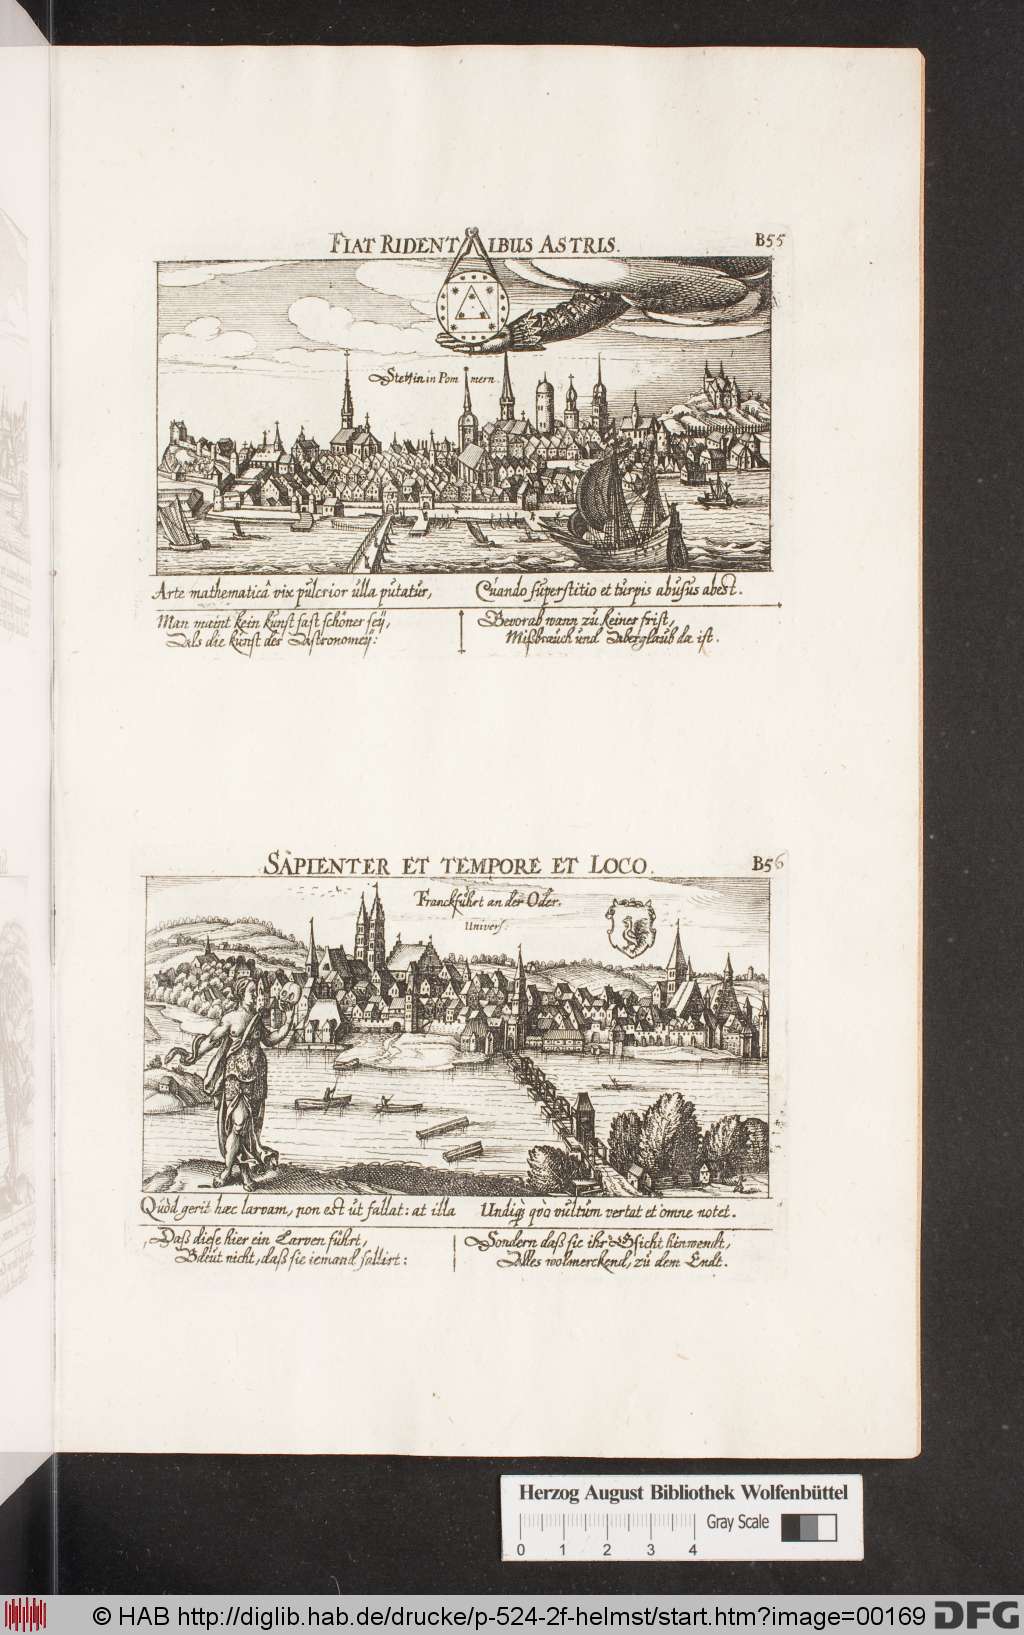 FIAT RIDENTIBUS ASTRIS.
B55
Stettin in Pommern.
Arte mathematicâ vix pulcrior ulla putatur,
Quando superstitio et turpis abusus abest.
Man maint kein kunst fast schöner seÿ,
Als die kunst der Astronomeÿ:
Bevorab wann zu keiner frist,
Mißbrauch und Aberglaub da ist.
SAPIENTER ET TEMPORE ET LOCO.
B56
Franckfuhrt an der Oder.
Univers:
Quòd gerit hæc larvam, non est ut fallat: at illa
Undiq; quò vultum vertat et omne notet.
Daß diese hier ein Larven führt,
Bdeut nicht, daß sie iemand fallirt:
Sondern daß sie ihr Gsicht hinwendt,
Alles wolmerckend, zu dem Endt.
Herzog August Bibliothek Wolfenbüttel
Gray Scale
0 1 2 3 4
© HAB http://diglib.hab.de/drucke/p-524-2f-helmst/start.htm?image=00169
DFG